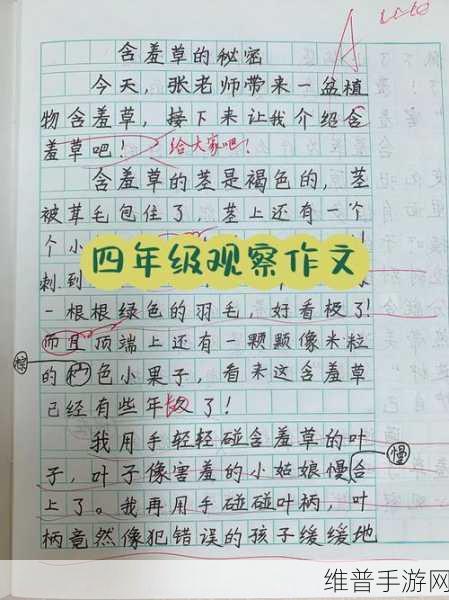 含羞草的秘密
今天,张老师带来一盆植
物含羞草,接下来让我介绍含
羞草吧!
给大家吧!
含羞草的茎是褐色的,茎
被茸毛包住了,茎上还有一个
个小
四年级观察作文
刺到
一根根绿色的羽毛,好看极了!
而且顶端上还有一颗颗像米粒
的棕色小果子,看来这含羞草
棕
已经有些年纪了!
我用手轻轻碰含羞草的叶
慢
子,叶子像害羞的小姑娘慢合
上了。我再用手碰碰叶柄,叶
柄竟然像犯错误的孩子缓缓地
维普手游网